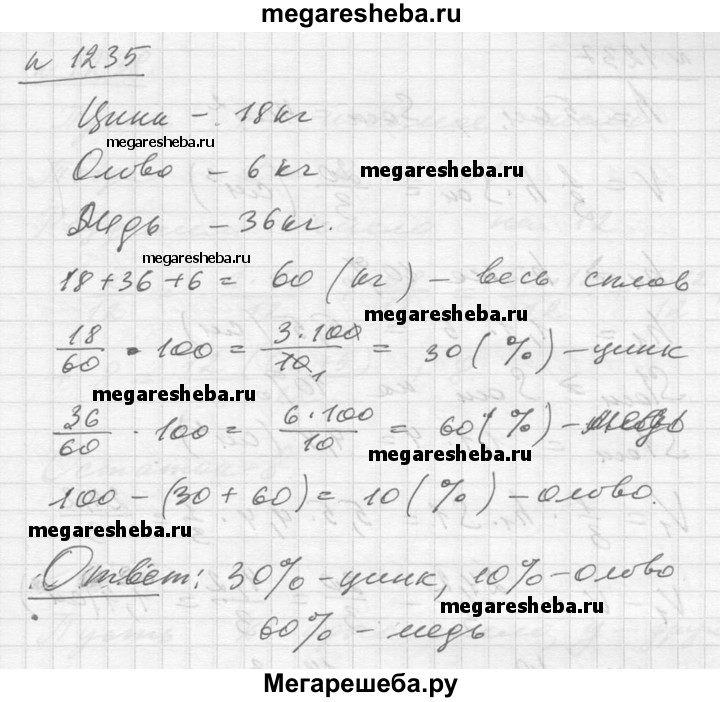 megaresheba.ru
н 1235
Цинк - 18 кг
megaresheba.ru
Олово - 6 кг
megaresheba.ru
Медь - 36 кг.
megaresheba.ru
18 + 36 + 6 = 60 (кг) - весь сплав
megaresheba.ru
18/60 · 100 = 3·100/10 1 = 30 (%) - цинк
megaresheba.ru
36/60 · 100 = 6·100/10 = 60 (%) - медь
megaresheba.ru
100 - (30 + 60) = 10 (%) - олово.
megaresheba.ru
Ответ: 30% - цинк, 10% - олово
megaresheba.ru
60% - медь
Мегарешеба.ру